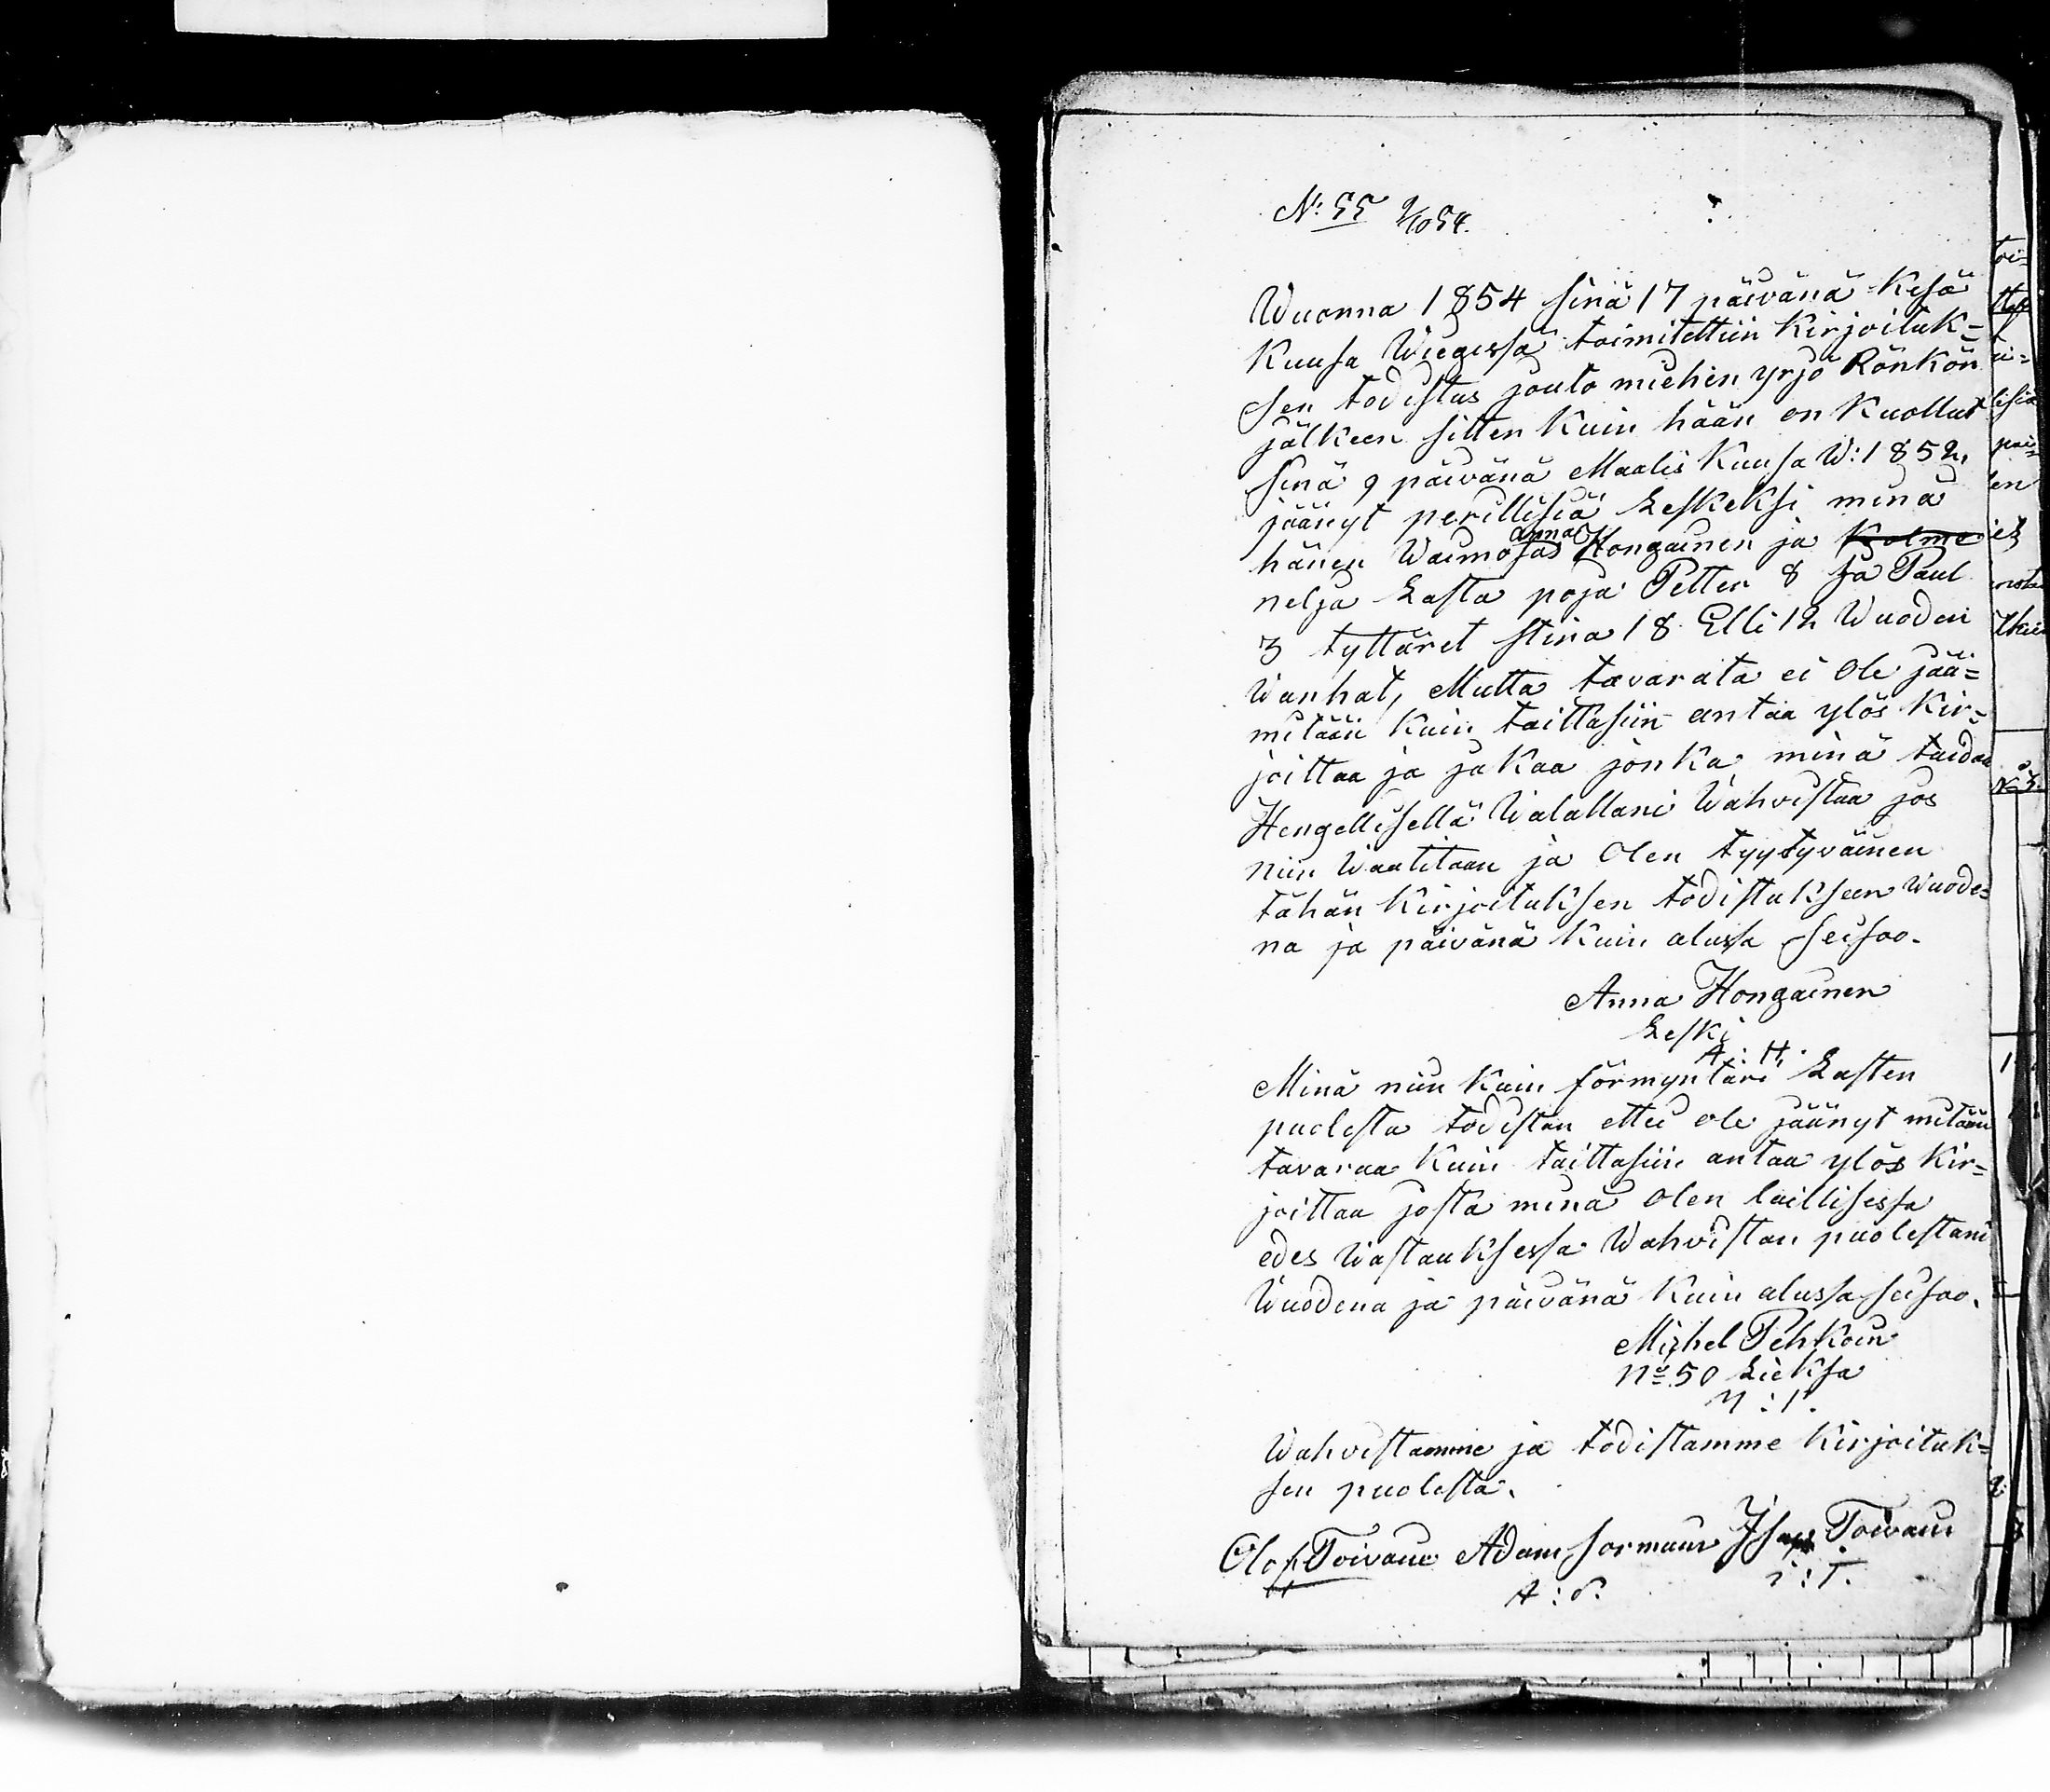 N: 55 9/10 54.
Wuonna 1854 sinä 17 päivänä Kesä
Kuusa Wiegissä toimitettiin Kirjoituk=
sen todistus jouto miehen yrjö Rönkön
jälkeen sitten Kuin hään on Kuollut
sinä 9 päivänä Maalis Kuusa W: 1852,
jäänyt perillisiä Leskeksi minä
anna
hänen Waimosas Hongainen ja Kolme
neljä Lasta poja Petter 8 ja Paul
3 tyttäret Stina 18 Elli 12 Wuoden
Wanhat, Mutta tavarata ei Ole jää=
mitään Kuin taittasiin antaa ylös Kir=
joittaa ja jakaa jonka minä taidan
Hengellisellä Walallani Wahvistaa jos
niin Waatitaan ja Olen tyytyväinen
tähän Kirjoituksen todistukseen Wuode=
na ja päivänä Kuin alussa seisoo.
Anna Hongainen
Leski
A: H.
Minä niin Kuin förmyntäri Lasten
puolesta todistan ettei ole jäänyt mitään
tavaraa Kuin taittasiin antaa ylös Kir=
joittaa josta minä Olen laillisessa
edes Wastauksessa Wahvistan puolestani
Wuodena ja päivänä Kuin alussa seisoo.
Mihel Pehkoin
No 50 Lieksa
Wahvistamme ja todistamme Kirjoituk=
sen puolesta.
Olof Toivain Adam Sormuin Toivain
A: S. i: T.